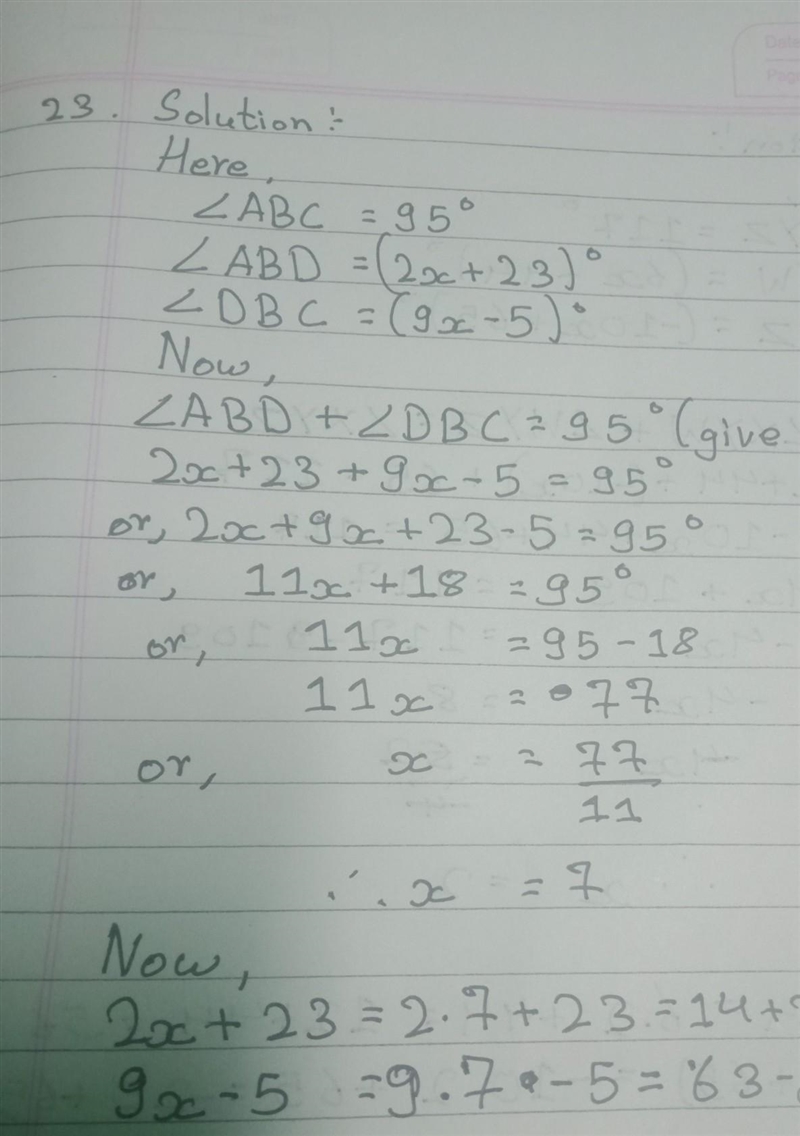 23. Solution :-
Here,
∠ABC = 95°
∠ABD = (2x + 23)°
∠DBC = (9x - 5)°
Now,
∠ABD + ∠DBC = 95° (give
2x + 23 + 9x - 5 = 95°
or, 2x + 9x + 23 - 5 = 95°
or, 11x + 18 = 95°
or, 11x = 95 - 18
11x = 77
or, x = 77/11
∴ x = 7
Now,
2x + 23 = 2.7 + 23 = 14 +
9x - 5 = 9.7 - 5 = 63 -